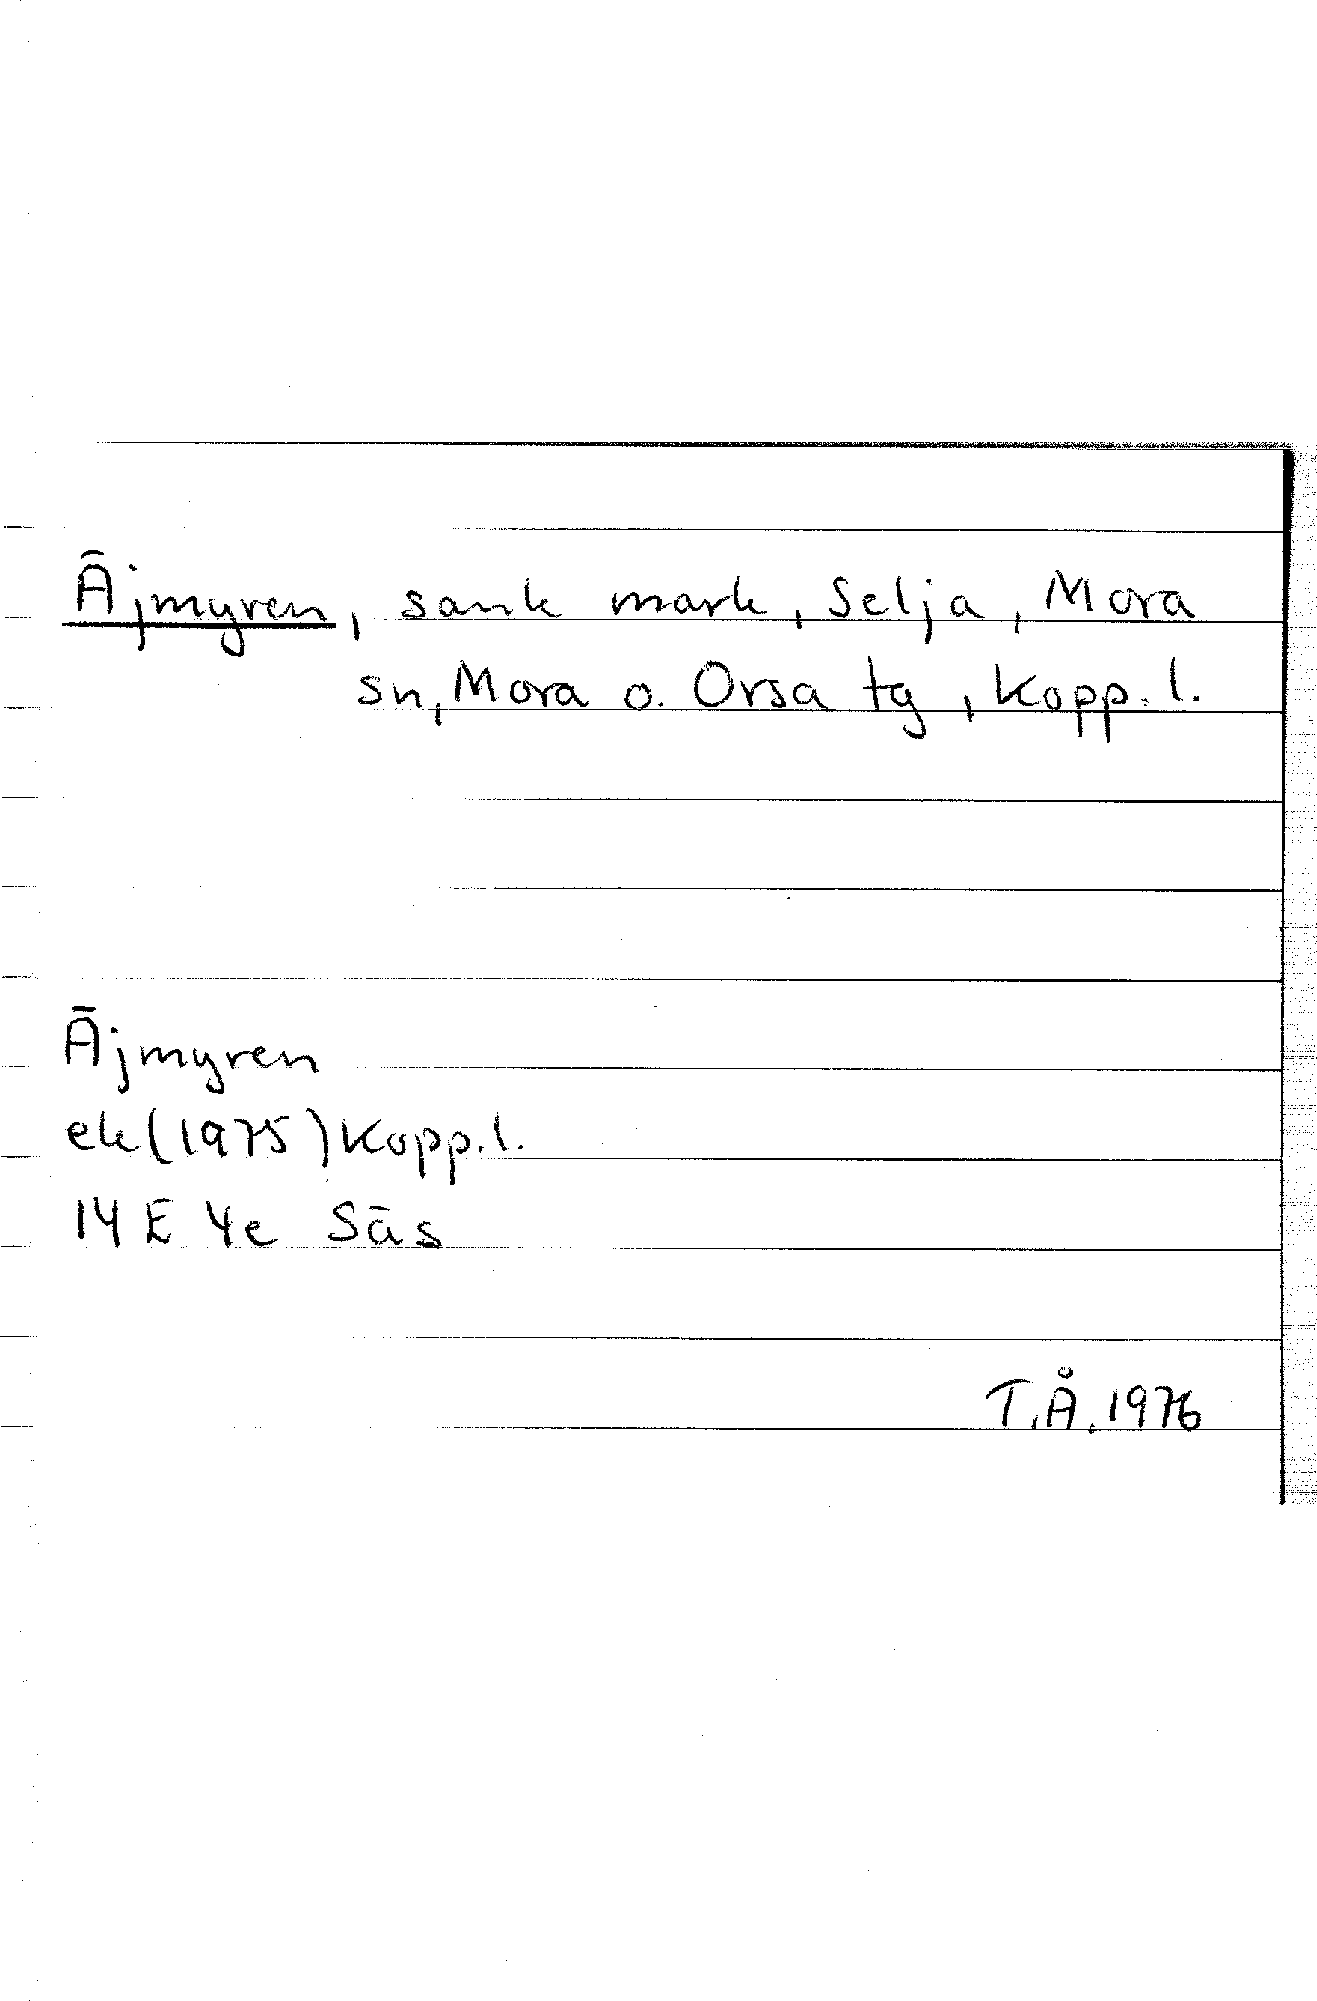 Äjmyren, sank mark, Selja, Mora
sn, Mora o. Orsa tg, Kopp. l.
Äjmyren
ek (1975) Kopp. l.
14 E 4e Säs
T.Å. 1976